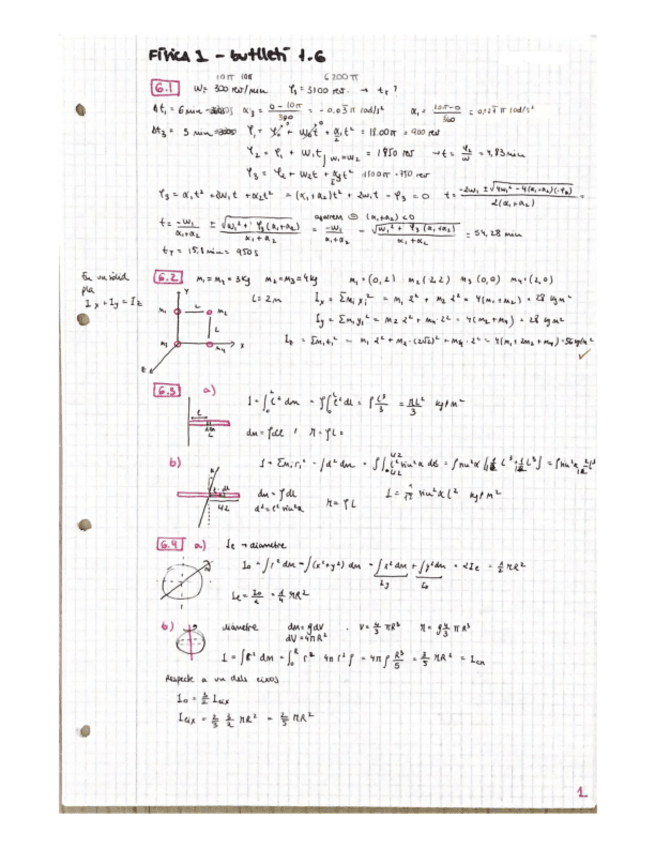 Física 1 - butlletí 1.6
10π 10π 6200π
6.1 ω = 300 rev/min φ₃ = 3100 rev. → t_T ?
Δt₁ = 6 min α₃ = (0 - 10π)/360 = -0,03π rad/s² α₁ = (10π - 0)/360 = 0,027π rad/s²
Δt₃ = 5 min φ₁ = φ₀ + ω₀t + α₁/2 t² = 1800π = 900 rev
φ₂ = φ₁ + ω₁t] ω₁=ω₂ = 1450 rev → t = φ₂/ω = 4,83 min
φ₃ = φ₂ + ω₂t + α₂/2 t² 1500π = 750 rev
φ₃ = α₁t² + 2ω₁t + α₂t² = (α₁+α₂)t² + 2ω₁t - φ₃ = 0 t = (-2ω₁ ± √(4ω₁² - 4(α₁+α₂)(-φ₃)))/(2(α₁+α₂)) =
t = -ω₁/(α₁+α₂) ± √(ω₁² + φ₃(α₁+α₂))/(α₁+α₂) = agafem ⊖ (α₁+α₂) < 0 -ω₁/(α₁+α₂) - √(ω₁² + φ₃(α₁+α₂))/(α₁+α₂) = 54,28 min
t_T = 15,8 min = 950 s
En un sòlid
pla
I x + I y = I z
6.2 m₁ = m₄ = 3Kg m₂ = m₃ = 4 kg m₁ = (0,2) m₂ (2,2) m₃ (0,0) m₄ = (2,0)
Y L = 2 m Iₓ = Σmᵢxᵢ² = m₁ 2² + m₂ 2² = 4(m₁+m₂) = 28 kg m²
m₁ L m₂
L I_y = Σmᵢyᵢ² = m₂ 2² + m₄·2² = 4(m₂+m₄) = 28 kg m²
m₃ m₄ x I_z = Σmᵢrᵢ² = m₁ 2² + m₂·(2√2)² + m₄·2² = 4(m₁+2m₂+m₄) = 56 kg/m² ✓
z
6.3 a)
I = ∫₀ ℓ² dm = ρ∫₀ ℓ² dℓ = ρ L³/3 = ML²/3 kg m²
ℓ
dm
L
dm = ρdℓ ; M = ρL
b) I = Σmᵢrᵢ² = ∫d² dm = ρ∫ ℓ² sin²α dℓ
dm = ρdℓ
d² = ℓ² sin²α
L/2
M = ρL I = 1/12 sin²α L² kg m²
6.4 a) I e → diàmetre
I₀ = ∫r² dm = ∫(x²+y²) dm = ∫x² dm + ∫y² dm = 2Ie = 1/2 MR²
I y I x
Ie = I₀/2 = 1/4 MR²
b) diàmetre dm = ρdV , V = 4/3 πR³ M = ρ 4/3 π R³
dV = 4πR²
I = ∫R² dm = ∫₀ᴿ r² 4π r² ρ = 4πρ R⁵/5 = 3/5 MR² = I cm
Respecte a un dels eixos
I₀ = 3/2 I eix
I eix = 2/3 3/5 MR² = 2/5 MR²
1